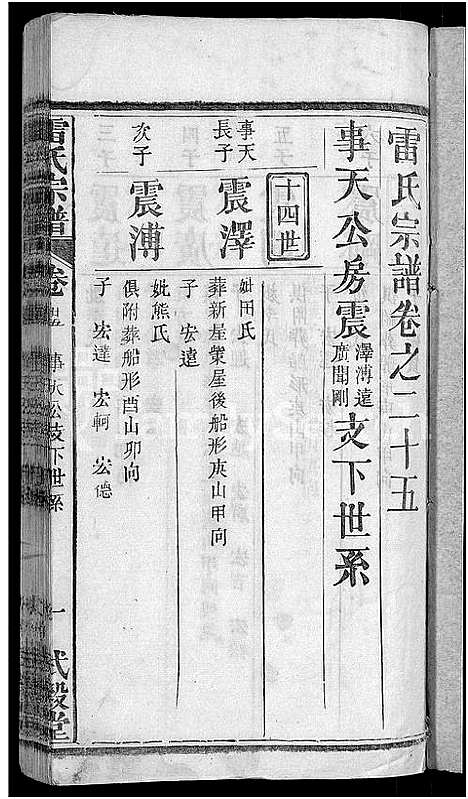 雷氏宗譜卷之二十五
事天公房震澤溥遠廣聞剛支下世系
十四世
事天長子 震澤
妣田氏
葬新屋衆屋後船形庚山甲向
子 宏遠
次子 震溥
妣熊氏
俱附葬船形酉山卯向
子 宏達 宏軻 宏德
雷氏宗譜 卷 事天公支下世系 一 武毅堂